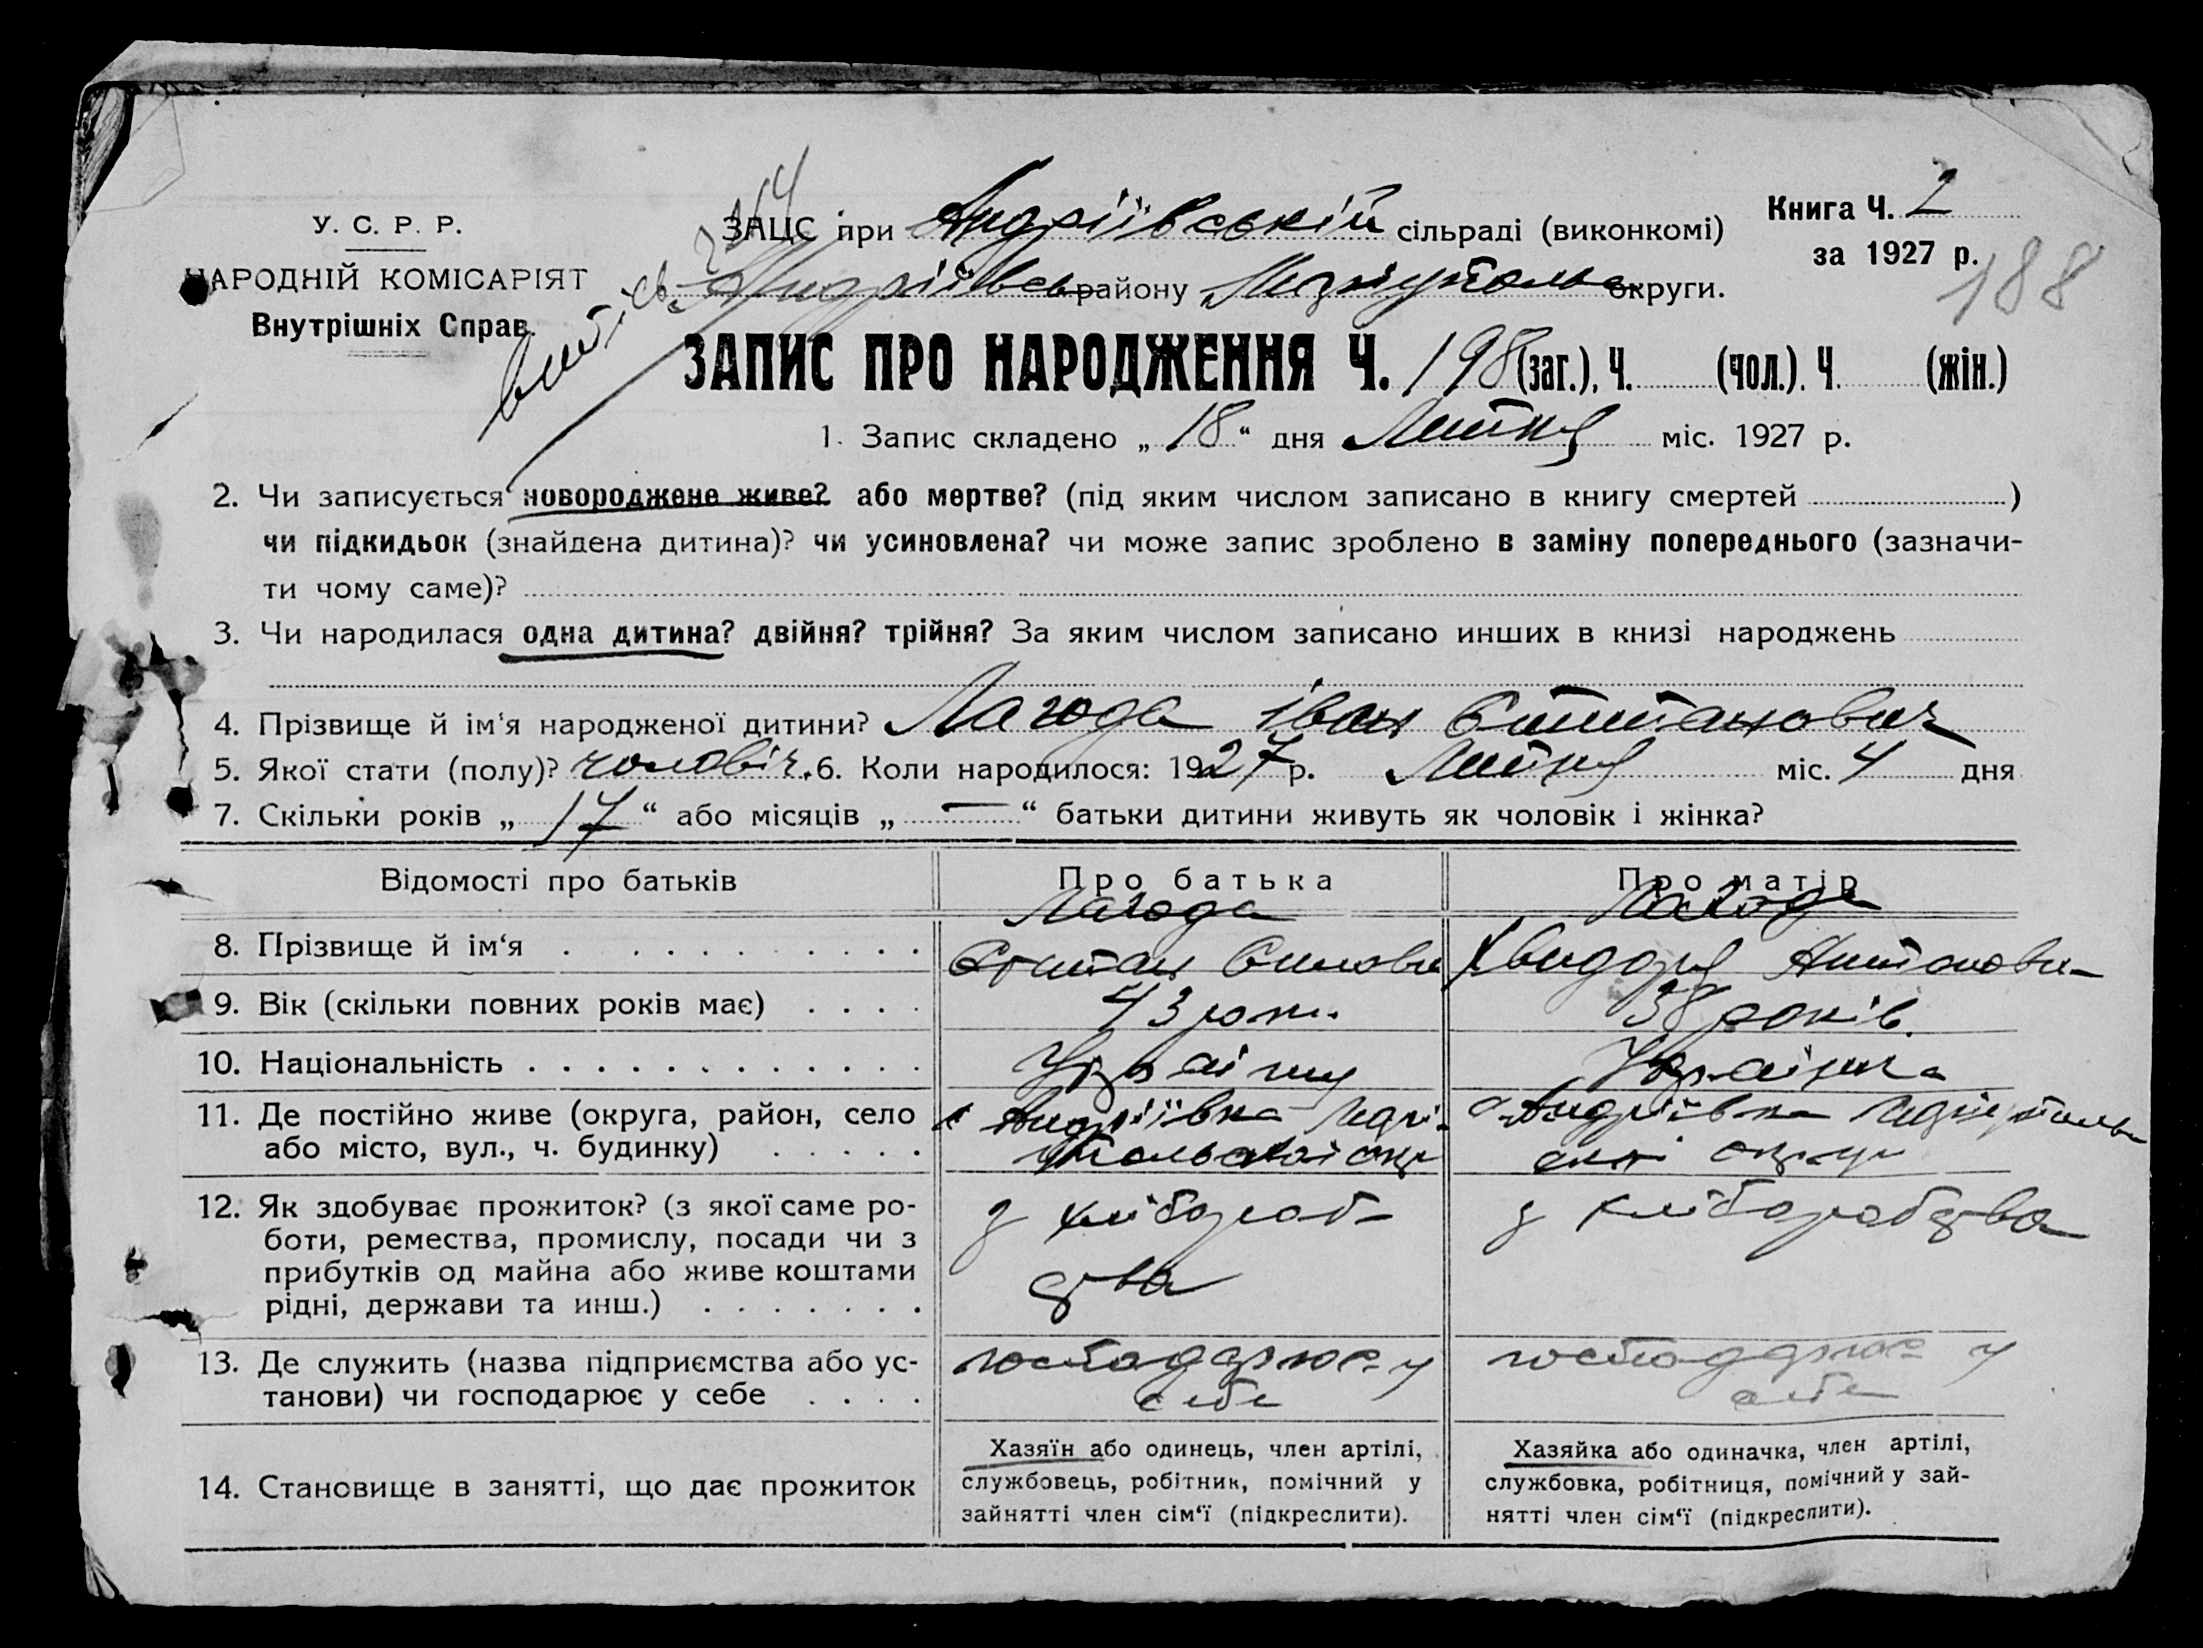 Книга Ч. 2
за 1927 р.
188
У. С. Р. Р.
НАРОДНІЙ КОМІСАРІЯТ
Внутрішніх Справ.
ЗАЦС при Андріївській сільраді (виконкомі)
Андріївськ району Маріупольс округи.
ЗАПИС ПРО НАРОДЖЕННЯ Ч. 198 (заг.), Ч. (чол.). Ч. (жін.)
1. Запис складено „ 18 “ дня Липня міс. 1927 р.
2. Чи записується новороджене живе? або мертве? (під яким числом записано в книгу смертей )
чи підкидьок (знайдена дитина)? чи усиновлена? чи може запис зроблено в заміну попереднього (зазначи-
ти чому саме)?
3. Чи народилася одна дитина? двійня? трійня? За яким числом записано инших в книзі народжень
4. Прізвище й ім‘я народженої дитини? Лагода Іван
5. Якої стати (полу)? чоловіч. 6. Коли народилося: 1927 р. Липня міс. 4 дня
7. Скільки років „ 17 “ або місяців „ — “ батьки дитини живуть як чоловік і жінка?
Відомості про батьків
Про батька
Про матір
8. Прізвище й ім‘я
Лагода
Лагода
9. Вік (скільки повних років має)
43 роки
38 років.
10. Національність
Українка
11. Де постійно живе (округа, район, село
або місто, вул., ч. будинку)
с Андріївка Марі-
с Андріївка
12. Як здобуває прожиток? (з якої саме ро-
боти, ремества, промислу, посади чи з
прибутків од майна або живе коштами
рідні, держави та инш.)
з хлібороб-
ства
з хліборобства
13. Де служить (назва підприємства або ус-
танови) чи господарює у себе
господарює у
себе
господарює у
себе
14. Становище в занятті, що дає прожиток
Хазяїн або одинець, член артілі,
службовець, робітник, помічний у
зайнятті член сім‘ї (підкреслити).
Хазяйка або одиначка, член артілі,
службовка, робітниця, помічний у зай-
нятті член сім‘ї (підкреслити).